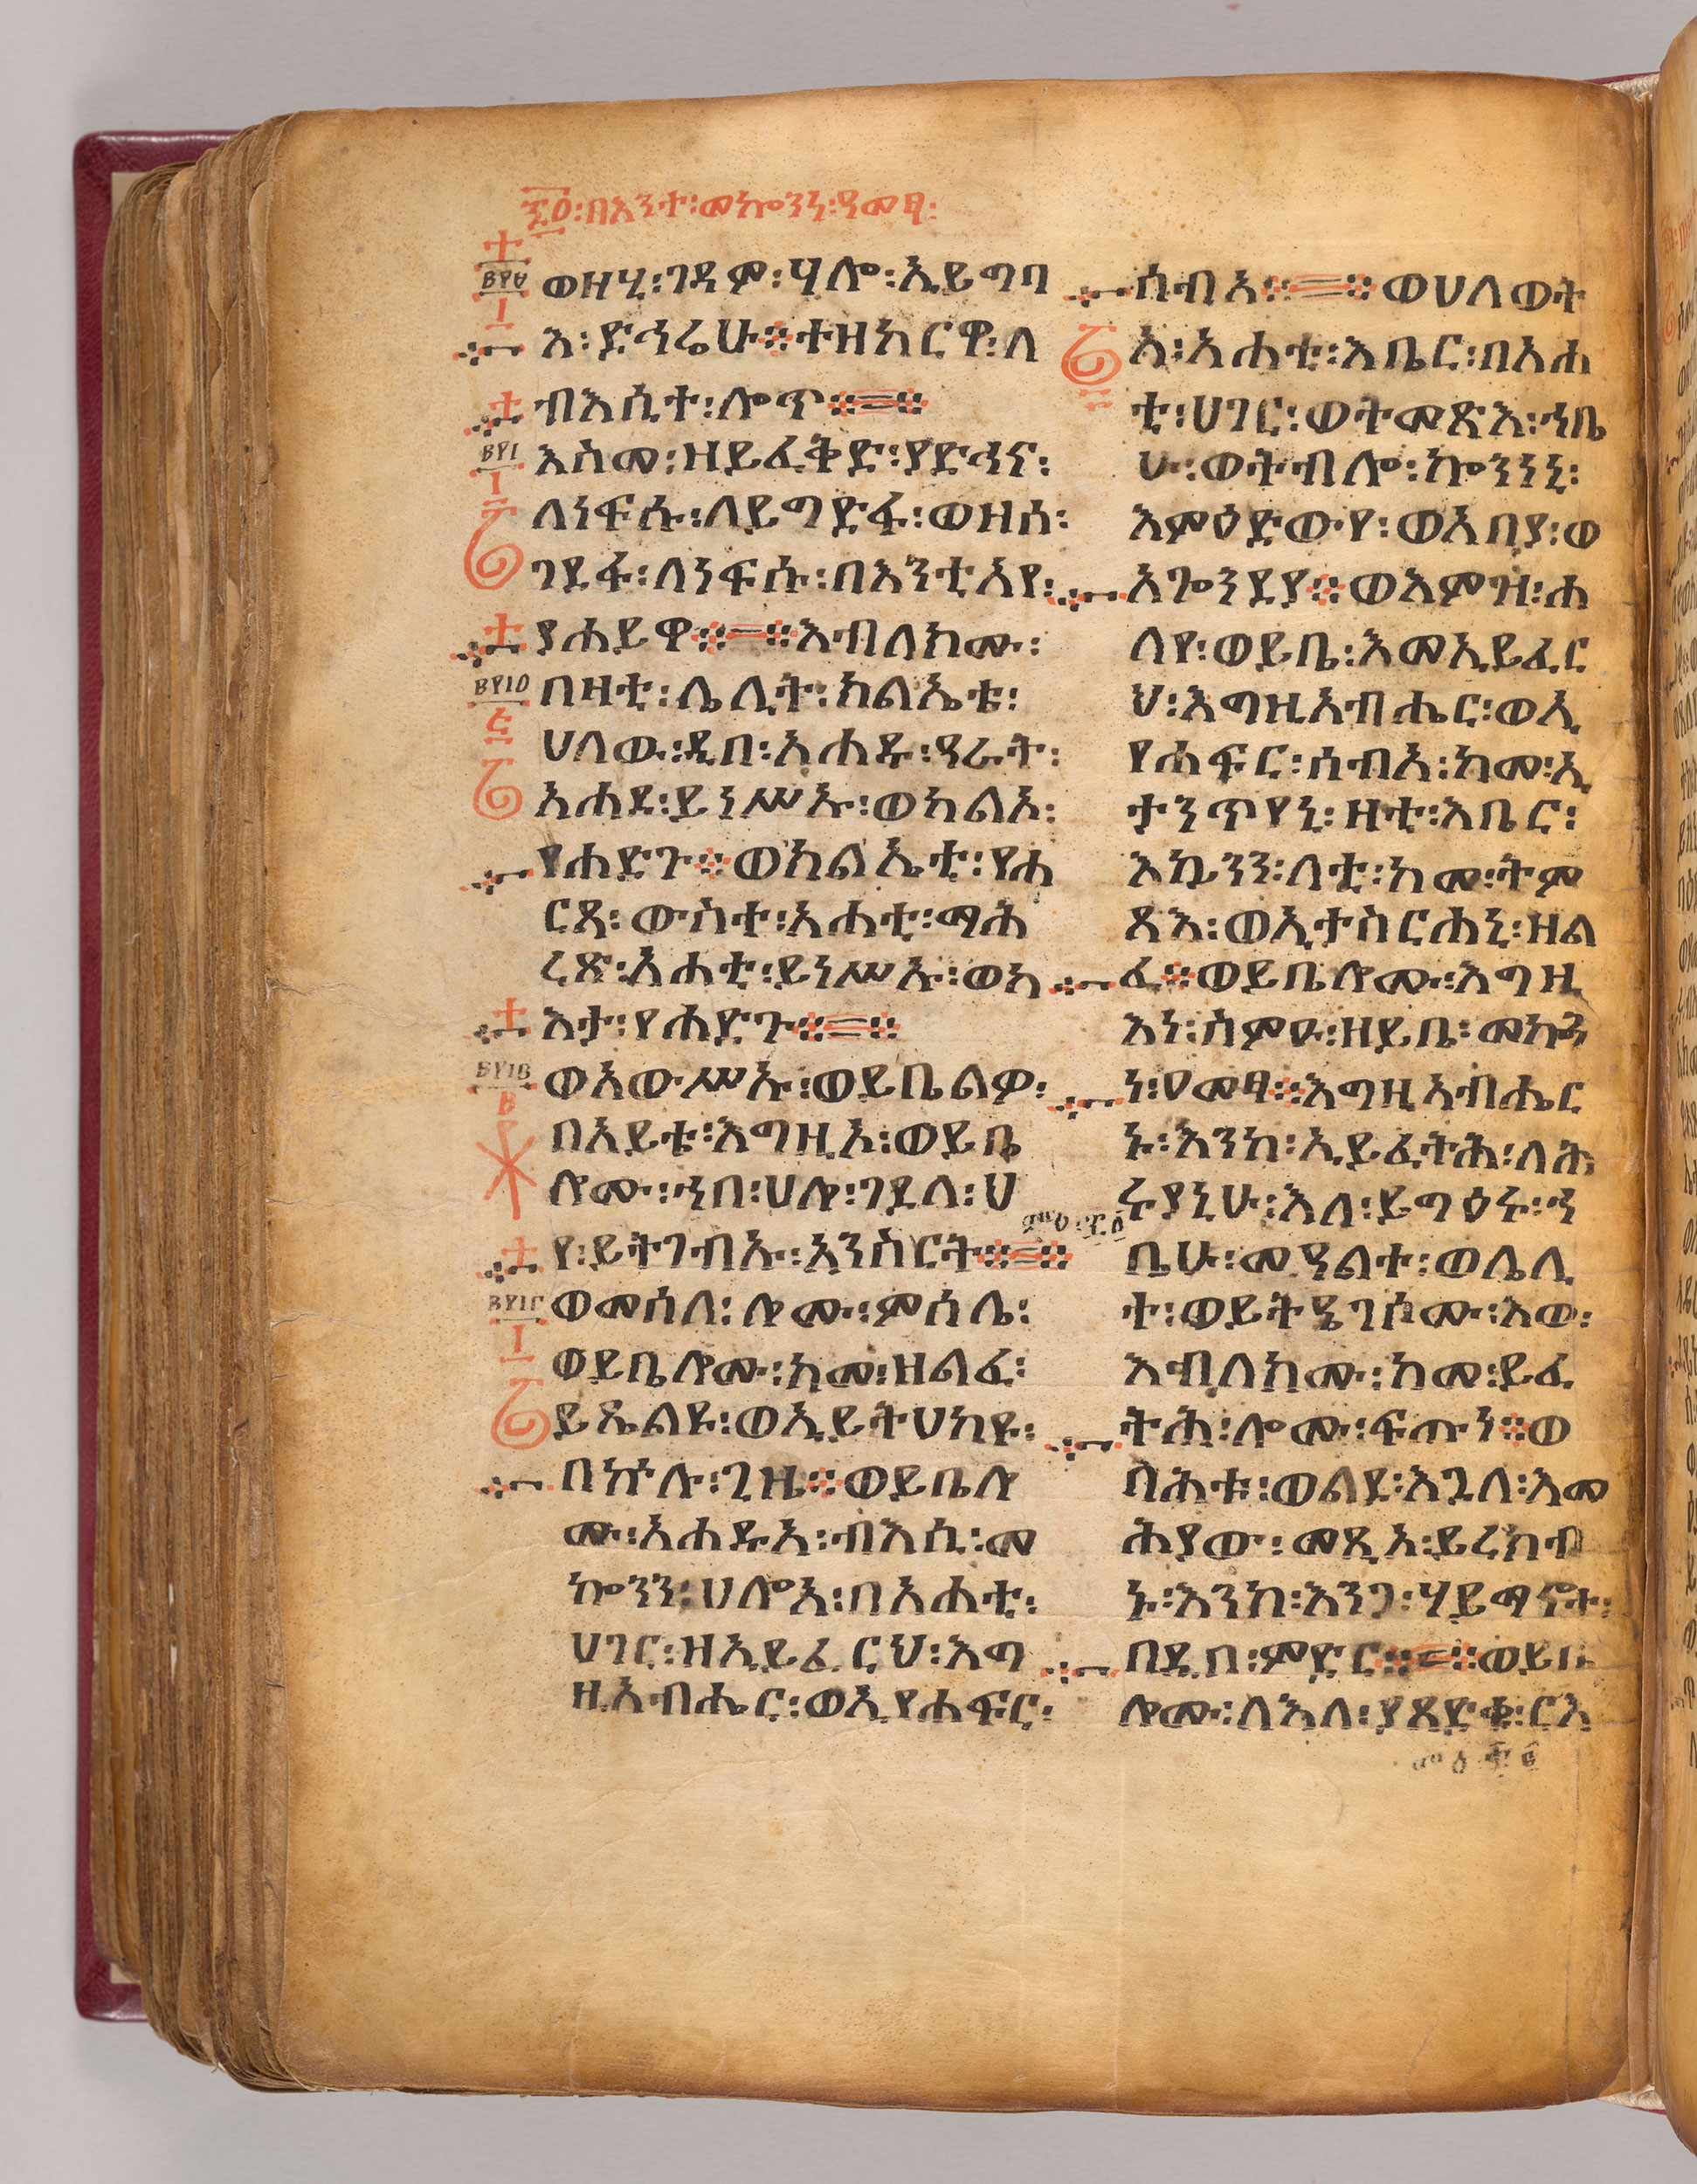 ፷፬፡በእንተ፡መኰንነ፡ዓመፃ፡
ወዘሂ፡ገዳም፡ሃሎ፡ኢይግባ
እ፡ድኅሬሁ፨ተዘከርዋ፡ለ
ብእሲተ፡ሎጥ፨፨
እስመ፡ዘይፈቅድ፡ያድኅና፡
ለነፍሱ፡ለይግድፋ፡ወዘሰ፡
ገደፋ፡ለነፍሱ፡በእንቲአየ፡
ያሐይዋ፨፨እብለክሙ፡
በዛቲ፡ሌሊት፡ክልኤቱ፡
ሀለው፡ዲበ፡አሐዱ፡ዓራት፡
አሐደ፡ይነሥኡ፡ወካልአ፡
የሐድጉ፨ወክልኤቲ፡የሐ
ርጻ፡ውስተ፡አሐቲ፡ማሕ
ረጽ፡አሐቲ፡ይነሥኡ፡ወካ
እታ፡የሐድጉ፨፨
ወአውሥኡ፡ወይቤልዎ፡
በአይቴ፡እግዚኦ፡ወይቤ
ሎሙ፡ኀበ፡ሀሎ፡ገደላ፡ህ
የ፡ይትገብኡ፡አንስርት፨፨
ወመሰለ፡ሎሙ፡ምሳሌ፡
ወይቤሎሙ፡ከመ፡ዘልፈ፡
ይጼልዩ፡ወኢይትሀከዩ፡
በኵሉ፡ጊዜ፨ወይቤሎ
ሙ፡አሐዱእ፡ብእሲ፡መ
ኰንን፡ሀሎአ፡በአሐቲ፡
ሀገር፡ዘኢይፈርህ፡እግ
ዚአብሔር፡ወኢየሐፍር፡
ሰብአ፨፨ወሀለወት
አ፡አሐቲ፡እቤር፡በአሐ
ቲ፡ሀገር፡ወትመጽእ፡ኀቤ
ሁ፡ወትብሎ፡ኰንነኒ፡
እምዕድውየ፡ወአበያ፡ወ
አጐንደያ፨ወእምዝ፡ሐ
ለየ፡ወይቤ፡እመኢይፈር
ህ፡እግዚአብሔር፡ወኢ
የሐፍር፡ሰብአ፡ከመ፡ኢ
ታንጥየኒ፡ዛቲ፡እቤር፡
እኴንን፡ላቲ፡ከመ፡ትም
ጻእ፡ወኢታስርሐኒ፡ዘል
ፈ፨ወይቤሎሙ፡እግዚ
እነ፡ስምዑ፡ዘይቤ፡መኰን
ነ፡ዐመፃ፨እግዚአብሔር
ኑ፡እንከ፡ኢይፈትሕ፡ለኅ
ሩያኒሁ፡እለ፡ይግዕሩ፡ኀ
ቤሁ፡መዓልተ፡ወሌሊ
ተ፡ወይትዔገሶሙ፡እወ፡
እብለክሙ፡ከመ፡ይፈ
ትሕ፡ሎሙ፡ፍጡነ፨ወ
ባሕቱ፡ወልደ፡እጓለ፡እመ
ሕያው፡መጺኦ፡ይረክብ
ኑ፡እንከ፡እንጋ፡ሃይማኖተ፡
በዲበ፡ምድር፨፨ወይቤ
ሎሙ፡ለእለ፡ያጸድቁ፡ርእ